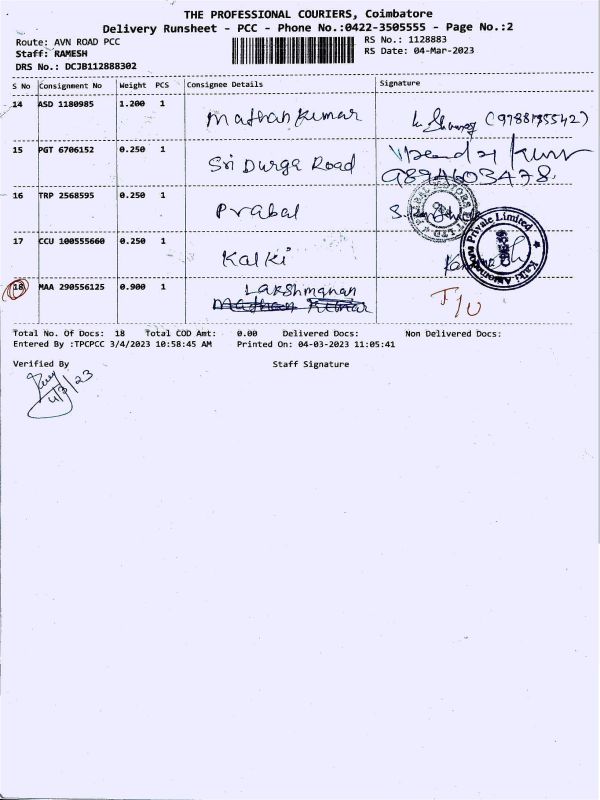 THE PROFESSIONAL COURIERS, Coimbatore
Delivery Runsheet - PCC - Phone No.:0422-3505555 - Page No.:2
Route: AVN ROAD PCC
RS No.: 1128883
Staff: RAMESH
RS Date: 04-Mar-2023
DRS No.: DCJB112888302
S No Consignment No Weight PCS Consignee Details Signature
14 ASD 1180985 1.200 1 Mathan Kumar
15 PGT 6706152 0.250 1 Sri Durga Road
16 TRP 2568595 0.250 1 Prabal
17 CCU 100555660 0.250 1 Kalki
Private Limited
18 MAA 290556125 0.900 1 Lakshmanan
Madhan Kumar
Total No. Of Docs: 18 Total COD Amt: 0.00 Delivered Docs: Non Delivered Docs:
Entered By :TPCPCC 3/4/2023 10:58:45 AM Printed On: 04-03-2023 11:05:41
Verified By Staff Signature